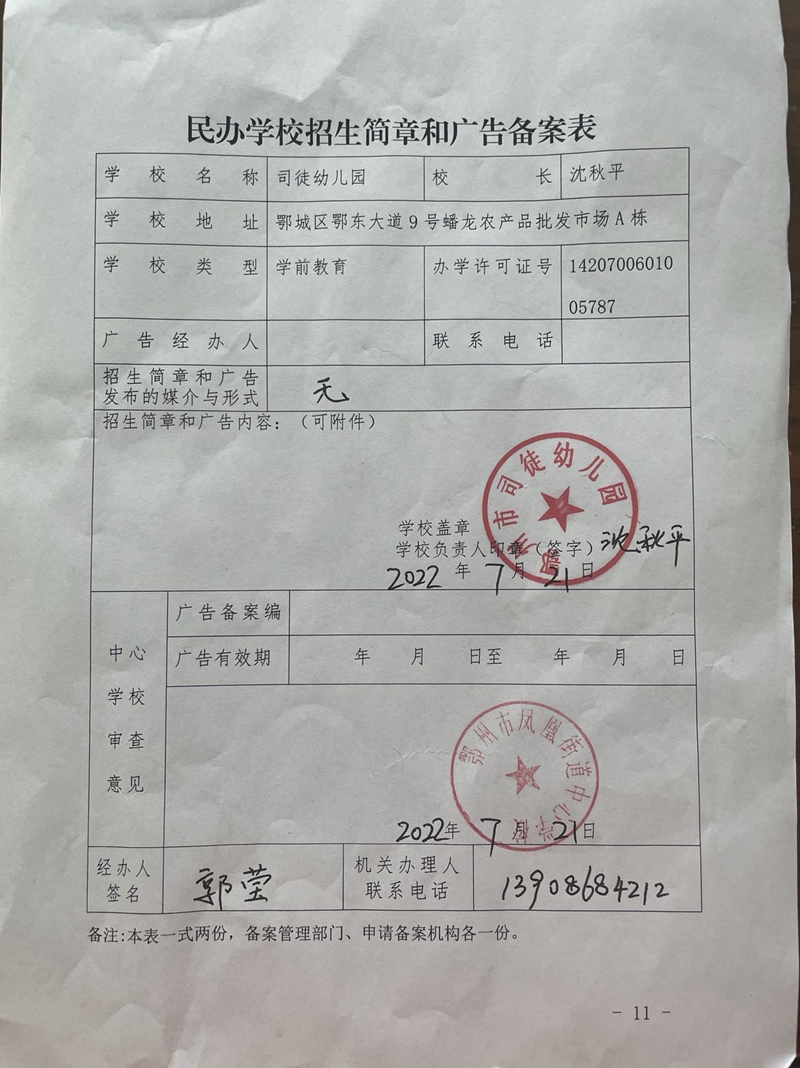 民办学校招生简章和广告备案表
学校名称 司徒幼儿园 校长 沈秋平
学校地址 鄂城区鄂东大道9号蟠龙农产品批发市场A栋
学校类型 学前教育 办学许可证号 14207006010
05787
广告经办人 联系电话
招生简章和广告
发布的媒介与形式 无
招生简章和广告内容：（可附件）
鄂州市司徒幼儿园
学校盖章
学校负责人印章（签字）沈秋平
2022年7月21日
中心
学校
审查
意见
广告备案编
广告有效期 年 月 日至 年 月 日
鄂州市凤凰街道中心学校
2022年7月21日
经办人
签名 郭莹
机关办理人
联系电话 13908684212
备注:本表一式两份，备案管理部门、申请备案机构各一份。
- 11 -